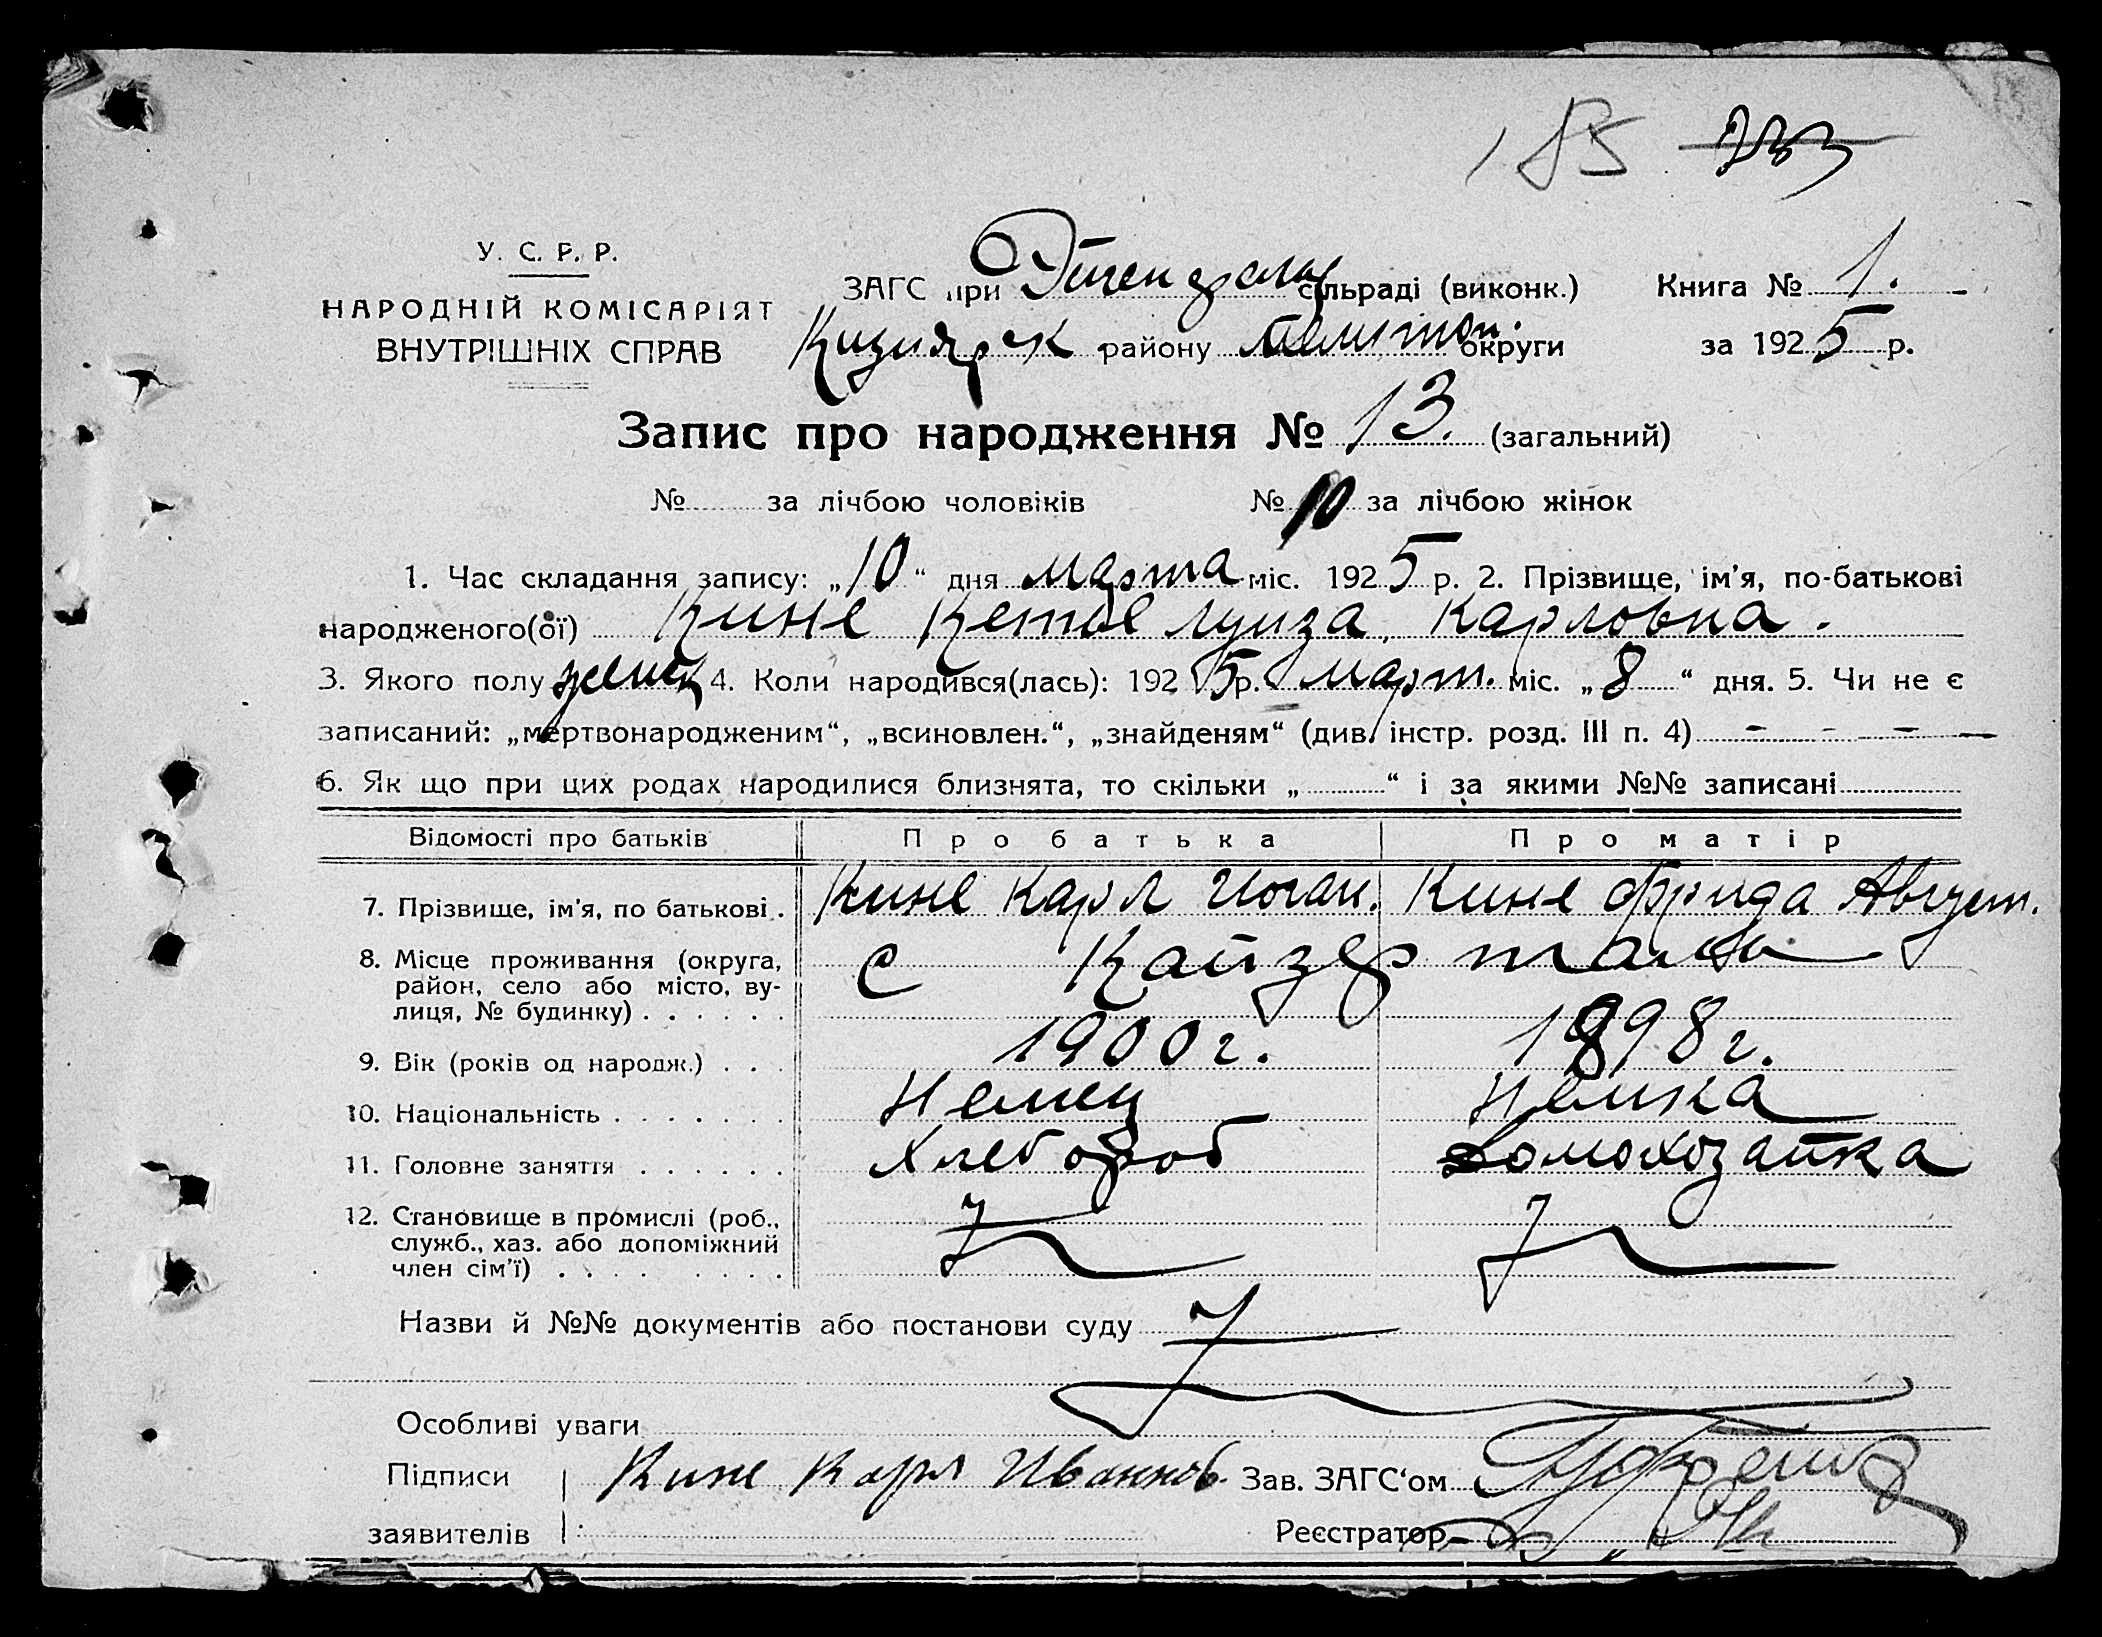 185 233
У. С. Р. Р.
НАРОДНІЙ КОМІСАРІЯТ
ВНУТРІШНІХ СПРАВ
ЗАГС при сільраді (виконк.) Книга № 1.
Кизиярск району Мелитоп. округи за 1925 р.
Запис про народження № 13. (загальний)
№ за лічбою чоловіків № 10 за лічбою жінок
1. Час складання запису: „10“ дня марта міс. 1925 р. 2. Прізвище, ім'я, по-батькові
народженого(ої) Кине Кетие Луиза Карловна.
3. Якого полу женск 4. Коли народився(лась): 1925 р. март. міс. „8“ дня. 5. Чи не є
записаний: „мертвонародженим“, „всиновлен.“, „знайденям“ (див. інстр. розд. III п. 4) - - - -
6. Як що при цих родах народилися близнята, то скільки „ “ і за якими №№ записані
Відомості про батьків Про батька Про матір
7. Прізвище, ім'я, по батькові. Кине Карл Иоган. Кине Фрида Август.
8. Місце проживання (округа, с Кайзерталь
район, село або місто, ву-
лиця, № будинку) . . . . . .
9. Вік (років од народж.) . . . 1900 г. 1898 г.
10. Національність . . . . . . . Немец Немка
11. Головне заняття . . . . . . Хлебороб Домохозайка
12. Становище в промислі (роб.,
служб., хаз. або допоміжний
член сім'ї) . . . . . . . .
Назви й №№ документів або постанови суду
Особливі уваги
Підписи Кине Карл Иванов. Зав. ЗАГС'ом
заявителів Реєстратор